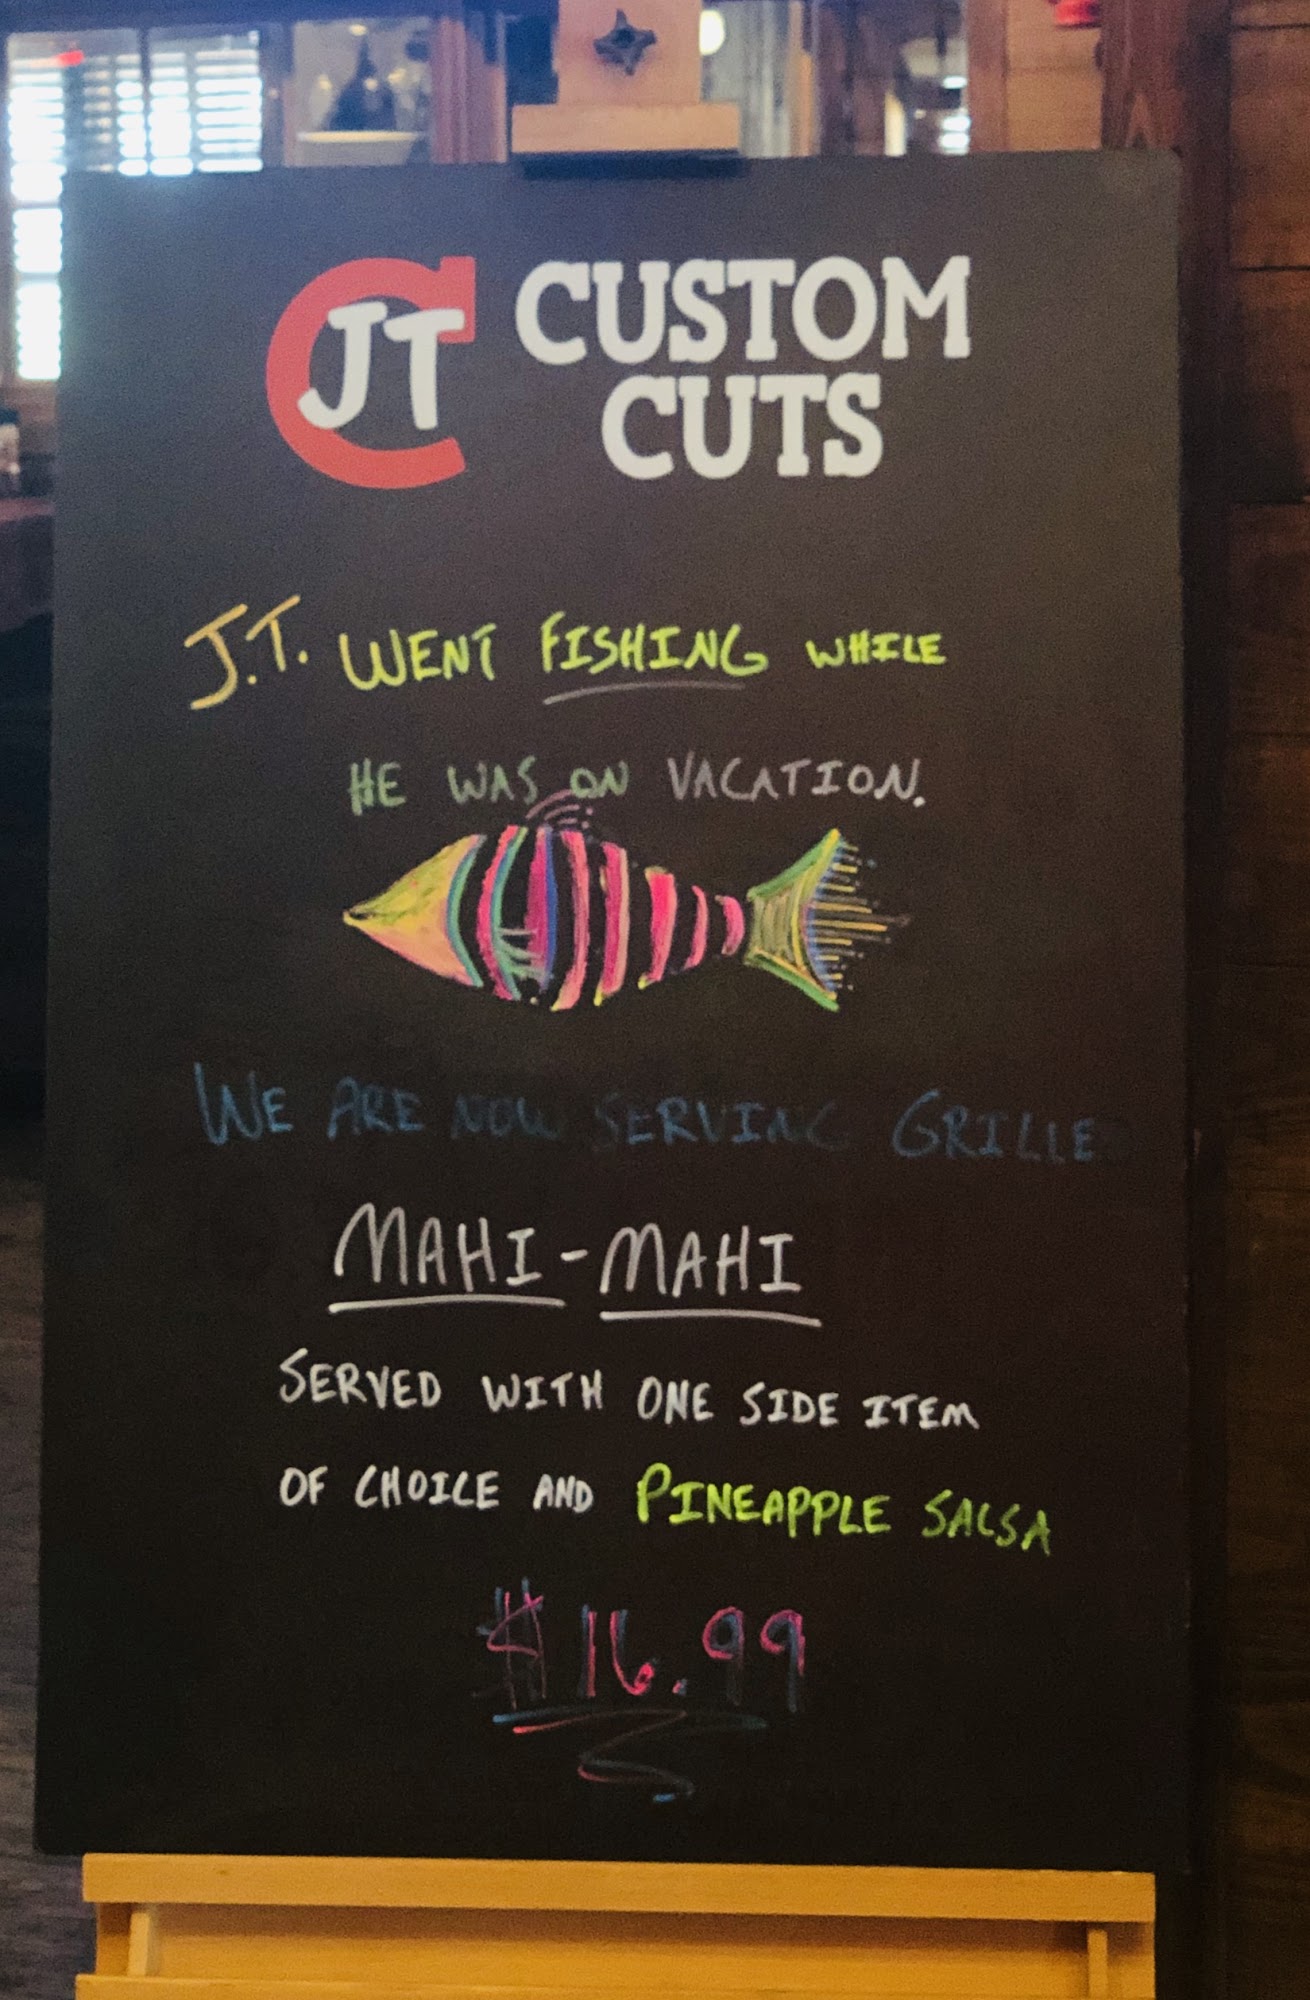 JT CUSTOM
CUTS
J.T. WENT FISHING WHILE
HE WAS ON VACATION.
WE ARE NOW SERVING GRILLED
MAHI-MAHI
SERVED WITH ONE SIDE ITEM
OF CHOICE AND PINEAPPLE SALSA
$16.99